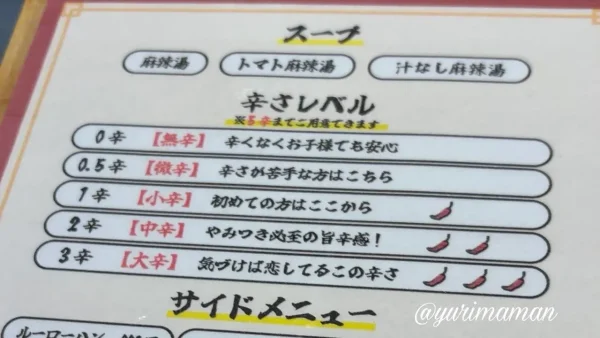 スープ
麻辣湯
トマト麻辣湯
汁なし麻辣湯
辛さレベル
※5辛までご用意できます
0辛 【無辛】 辛くなくお子様でも安心
0.5辛 【微辛】 辛さが苦手な方はこちら
1辛 【小辛】 初めての方はここから
2辛 【中辛】 やみつき必至の旨辛感！
3辛 【大辛】 気づけば恋してるこの辛さ
サイドメニュー
@yurimaman